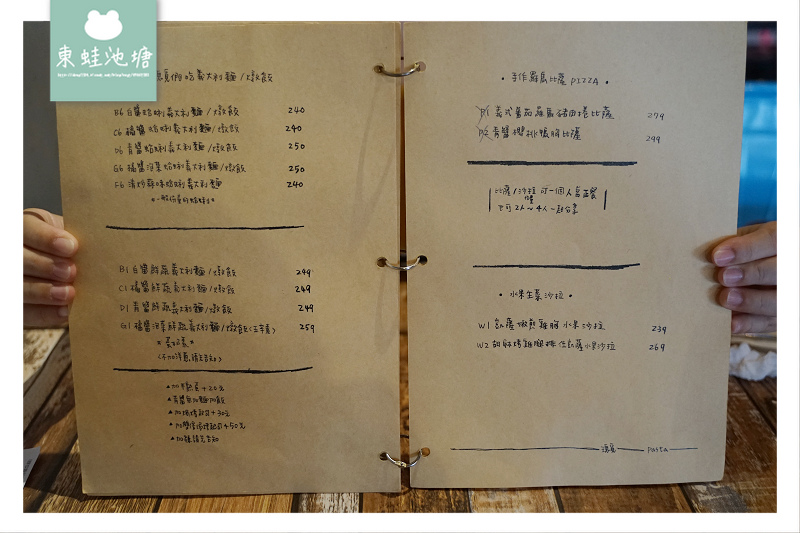 東蛙池塘
義大利麵/燉飯
B6 白醬蛤蜊義大利麵/燉飯 240
C6 橘醬蛤蜊義大利麵/燉飯 240
D6 青醬蛤蜊義大利麵/燉飯 250
G6 橘醬泡菜蛤蜊義大利麵/燉飯 250
F6 清炒蒜味蛤蜊義大利麵 240
B1 白醬鮮蔬義大利麵/燉飯 249
C1 橘醬鮮蔬義大利麵/燉飯 249
D1 青醬鮮蔬義大利麵/燉飯 249
G1 橘醬泡菜鮮蔬義大利麵/燉飯(五辛素) 259
* 蛋奶素 *
(不加洋蔥請告知)
▲加半熟蛋+20元
▲青醬無加麵加飯
▲加焗烤起司+30元
▲加雙倍焗烤起司+50元
▲加辣請先告知
• 手作羅馬比薩 PIZZA •
P1 義式蕃茄羅馬豬肉捲比薩 279
P2 青醬櫻桃鴨胸比薩 299
比薩/沙拉 可一個人當正餐
也可 2人~4人一起分享
• 水果生菜沙拉 •
W1 凱薩嫩煎雞胸水果沙拉 239
W2 胡麻烤雞腿排佐凱薩水果沙拉 269
Pasta